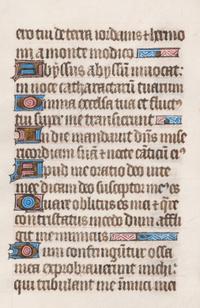 ero tui de terra iordanis ⁊ hermo
nij a monte modico
Abyssus abyssum inuocat:
in uoce catharactarum tuarum
Omnia excelsa tua et fluct
tui super me transierunt
In die mandauit dns mise
ricordiam suā ⁊ nocte cāticū ei⁹
Apud me oratio deo uite
mee dicam deo susceptor me⁹ es
Quare oblitus es mei ⁊ qre
contristatus incedo dum affli
git me inimicus
Dum confringuntur ossa
mea exprobrauerunt michi:
qui tribulant me inimici mei